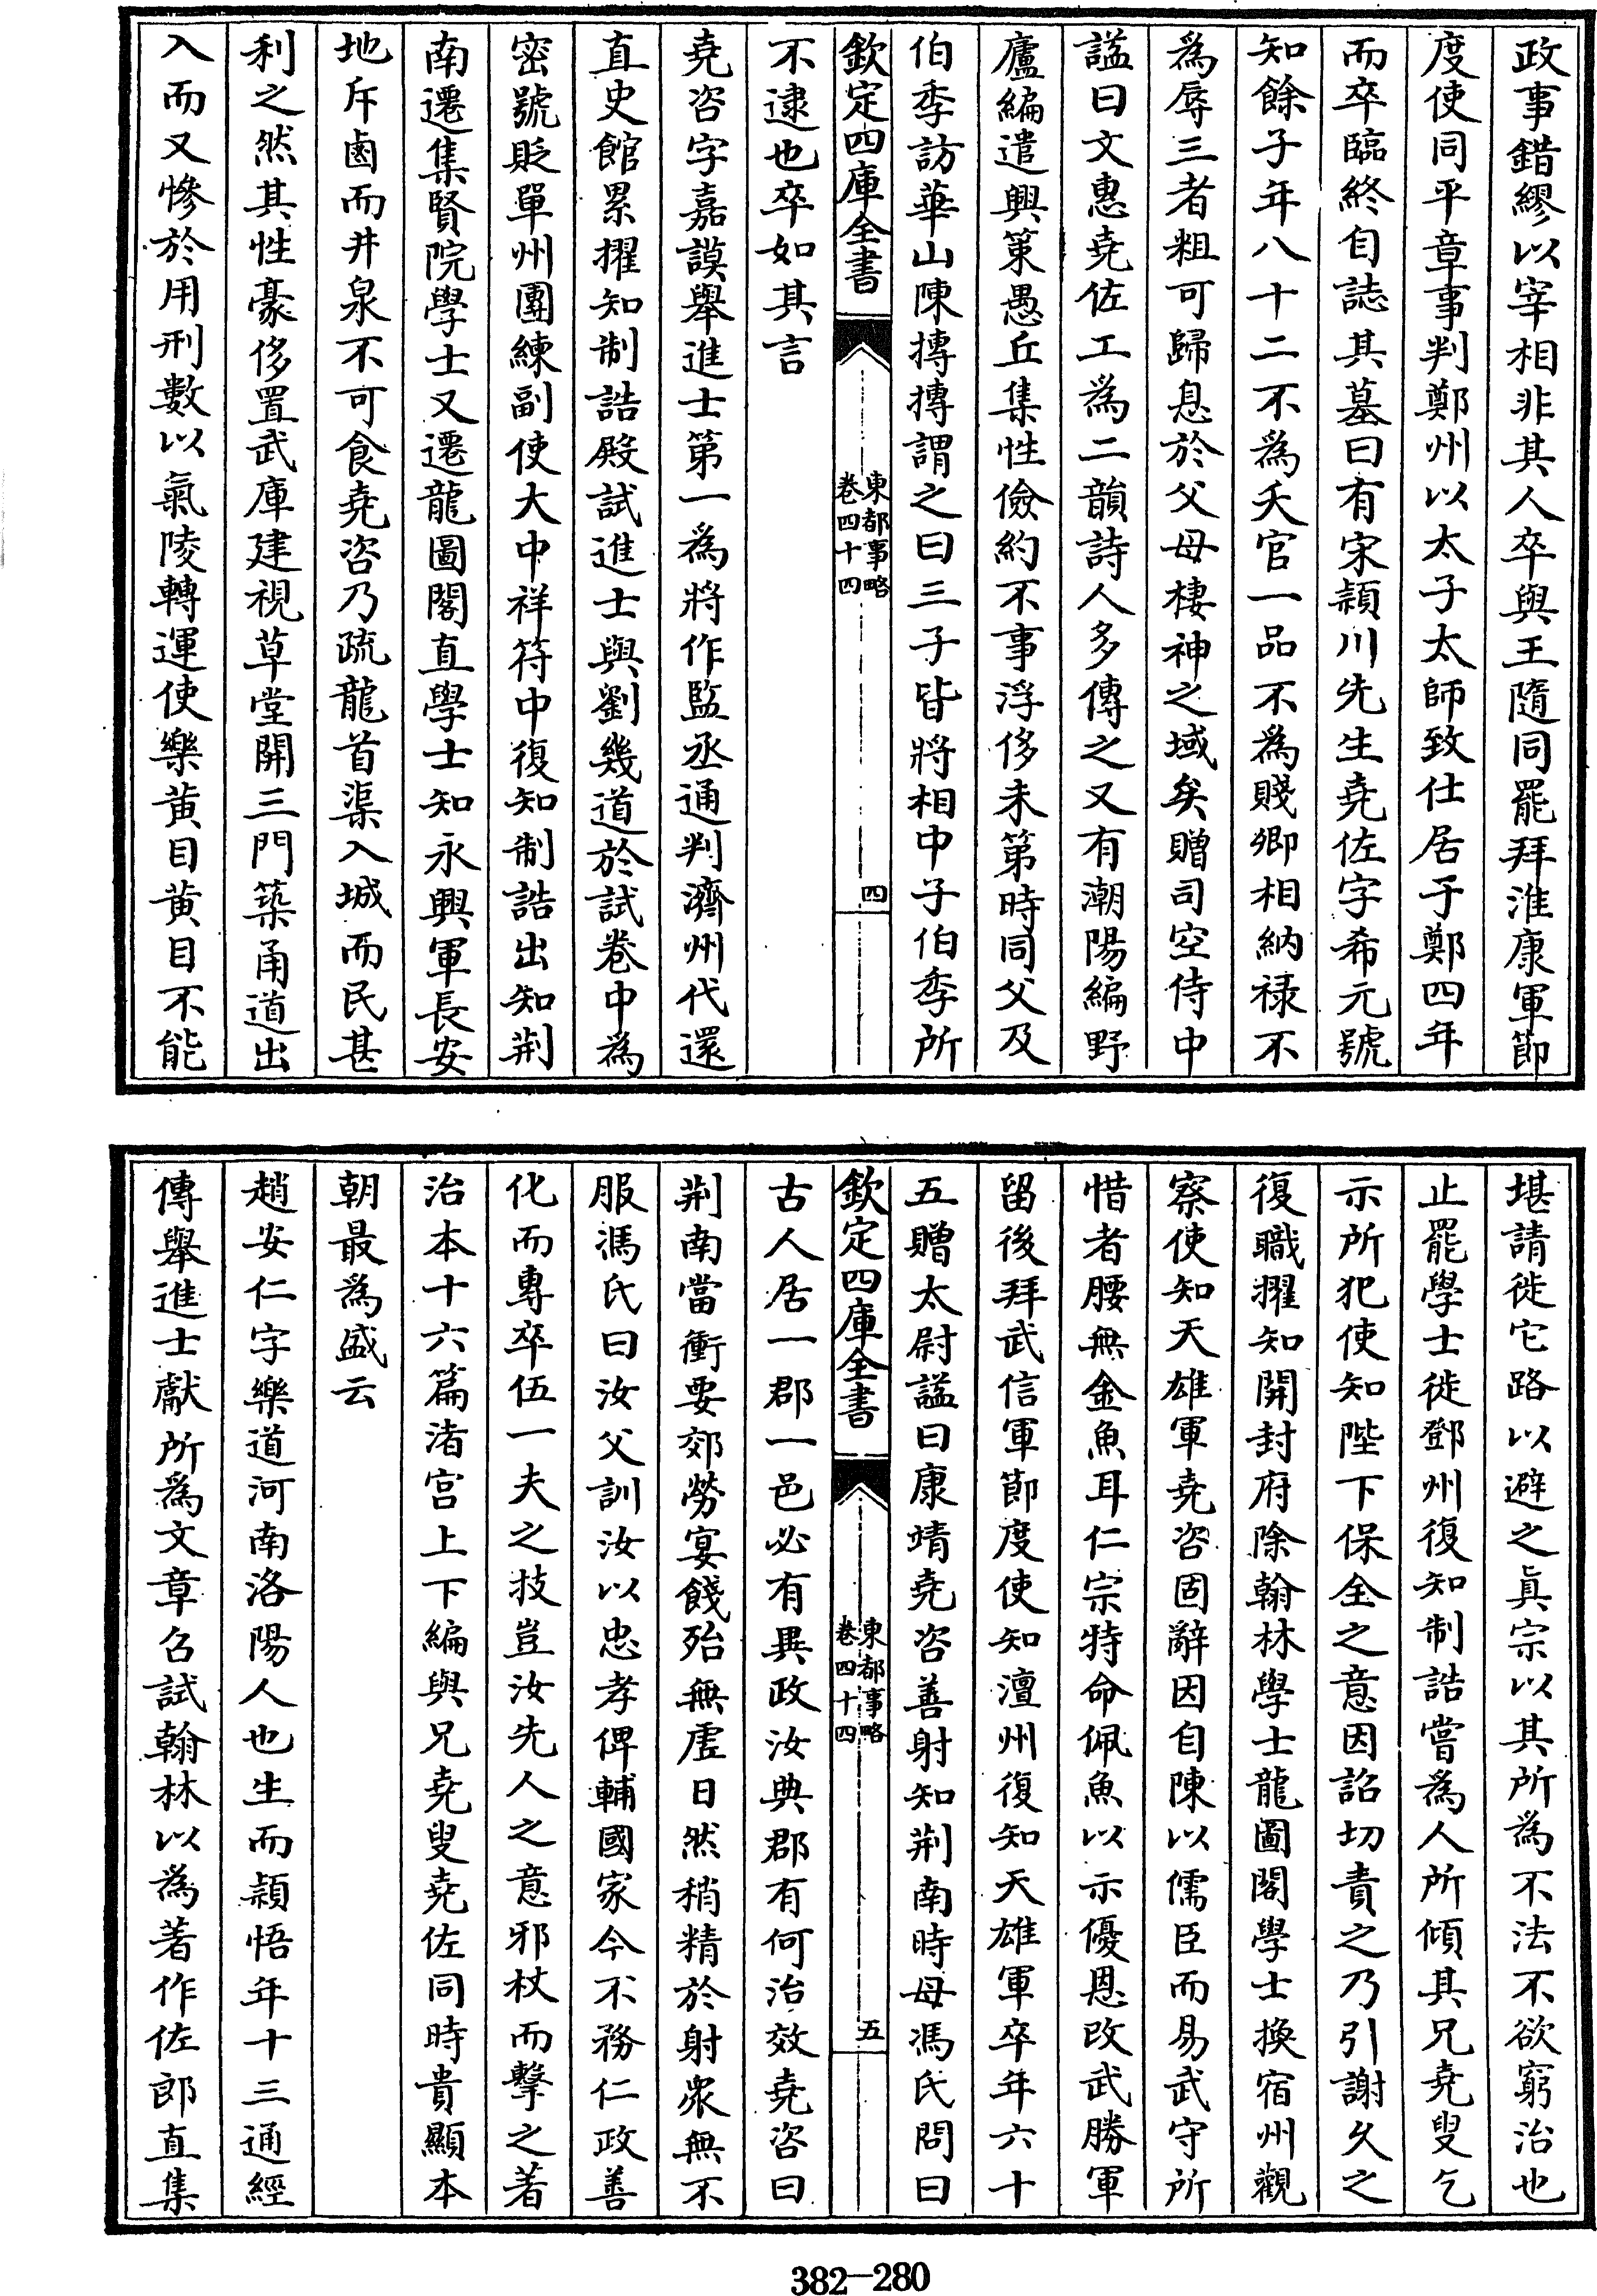 政事錯繆以宰相非其人卒與王隨同罷拜淮康軍節
度使同平章事判鄭州以太子太師致仕居于鄭四年
而卒臨終自誌其墓曰有宋潁川先生堯佐字希元號
知餘子年八十二不為夭官一品不為賤卿相納祿不
為辱三者粗可歸息於父母棲神之域矣贈司空侍中
諡曰文惠堯佐工為二韻詩人多傳之又有潮陽編野
廬編遣興策愚丘集性儉約不事浮侈未第時同父及
伯季訪華山陳摶摶謂之曰三子皆將相中子伯季所
欽定四庫全書
東都事略
卷四十四
四
不逮也卒如其言
堯咨字嘉謨舉進士第一為將作監丞通判濟州代還
直史館累擢知制誥殿試進士與劉幾道於試卷中為
密號貶單州團練副使大中祥符中復知制誥出知荆
南遷集賢院學士又遷龍圖閣直學士知永興軍長安
地斥鹵而井泉不可食堯咨乃疏龍首渠入城而民甚
利之然其性豪侈置武庫建視草堂開三門築甬道出
入而又慘於用刑數以氣陵轉運使樂黃目黃目不能
堪請徙它路以避之真宗以其所為不法不欲窮治也
止罷學士徙鄧州復知制誥嘗為人所傾其兄堯叟乞
示所犯使知陛下保全之意因詔切責之乃引謝久之
復職擢知開封府除翰林學士龍圖閣學士換宿州觀
察使知天雄軍堯咨固辭因自陳以儒臣而易武守所
惜者腰無金魚耳仁宗特命佩魚以示優恩改武勝軍
留後拜武信軍節度使知澶州復知天雄軍卒年六十
五贈太尉諡曰康靖堯咨善射知荆南時母馮氏問曰
欽定四庫全書
東都事略
卷四十四
五
古人居一郡一邑必有異政汝典郡有何治效堯咨曰
荆南當衝要郊勞宴餞殆無虛日然稍精於射衆無不
服馮氏曰汝父訓汝以忠孝俾輔國家今不務仁政善
化而專卒伍一夫之技豈汝先人之意邪杖而擊之著
治本十六篇渚宮上下編與兄堯叟堯佐同時貴顯本
朝最為盛云
趙安仁字樂道河南洛陽人也生而穎悟年十三通經
傳舉進士獻所為文章召試翰林以為著作佐郎直集
382-280